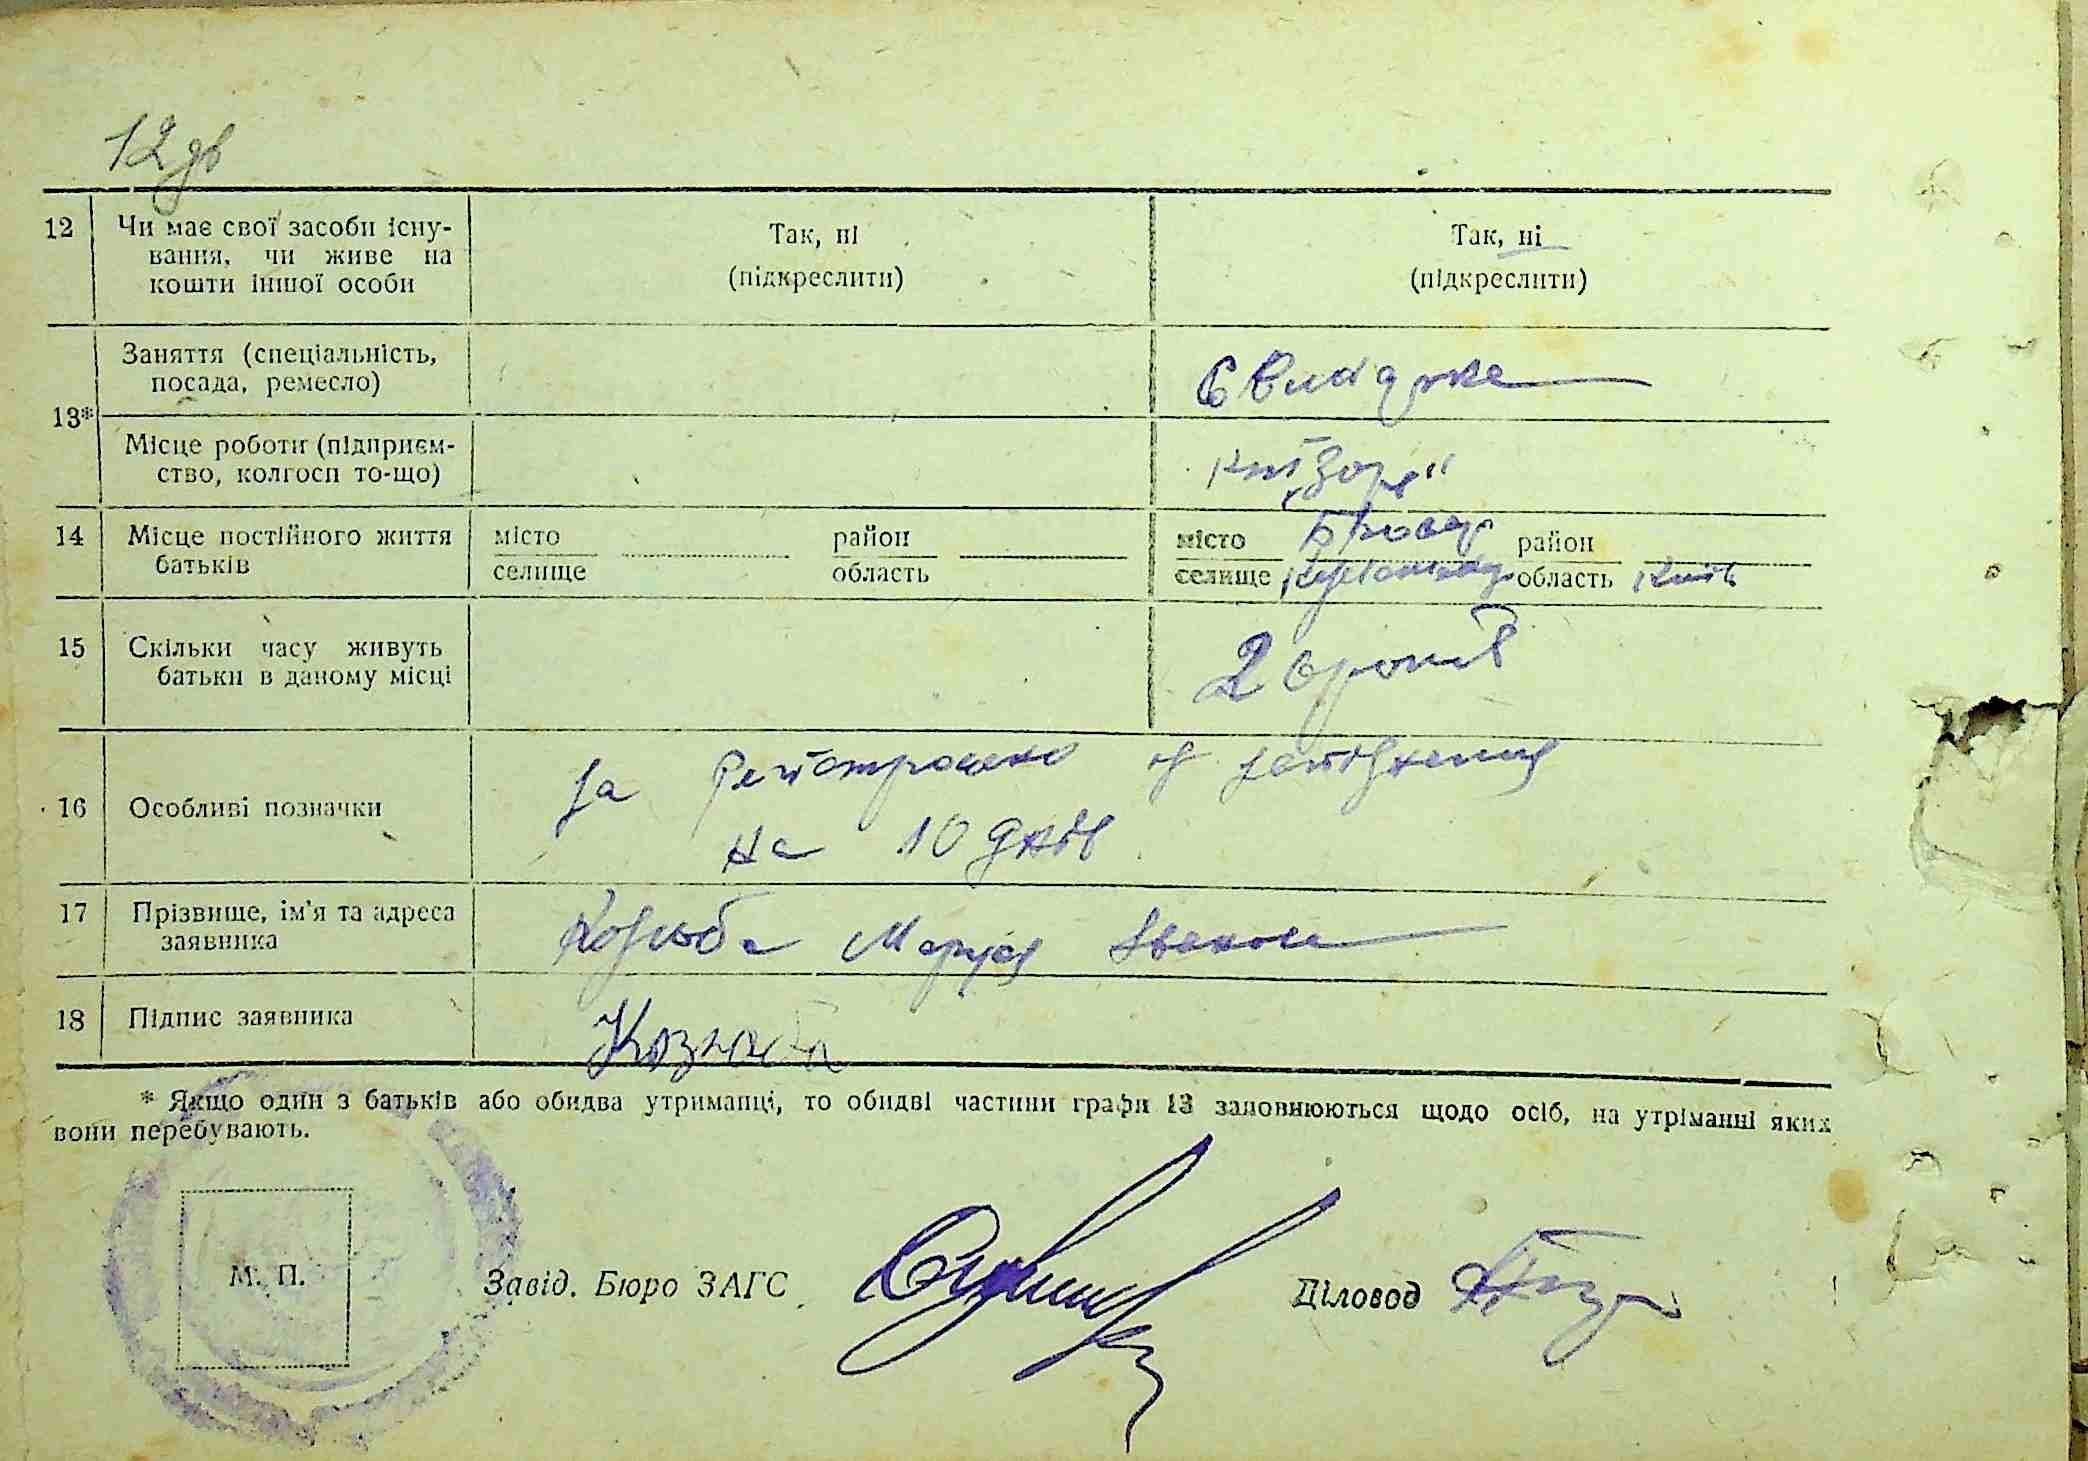 12 зв
12 Чи має свої засоби існу- Так, ні Так, ні
вання, чи живе на (підкреслити) (підкреслити)
кошти іншої особи
Заняття (спеціальність,
посада, ремесло)
13*
Місце роботи (підприєм- "Зоря"
ство, колгосп то-що)
14 Місце постійного життя місто район місто район
батьків селище область селище область Київ
15 Скільки часу живуть 2
батьки в даному місці
За регістровано
16 Особливі позначки
на 10 днів
17 Прізвище, ім'я та адреса Козюба Маруся
заявника
18 Підпис заявника Козюба
* Якщо один з батьків або обидва утриманці, то обидві частини графи 13 заповнюються щодо осіб, на утріманні яких
вони перебувають.
М. П. Завід. Бюро ЗАГС Діловод